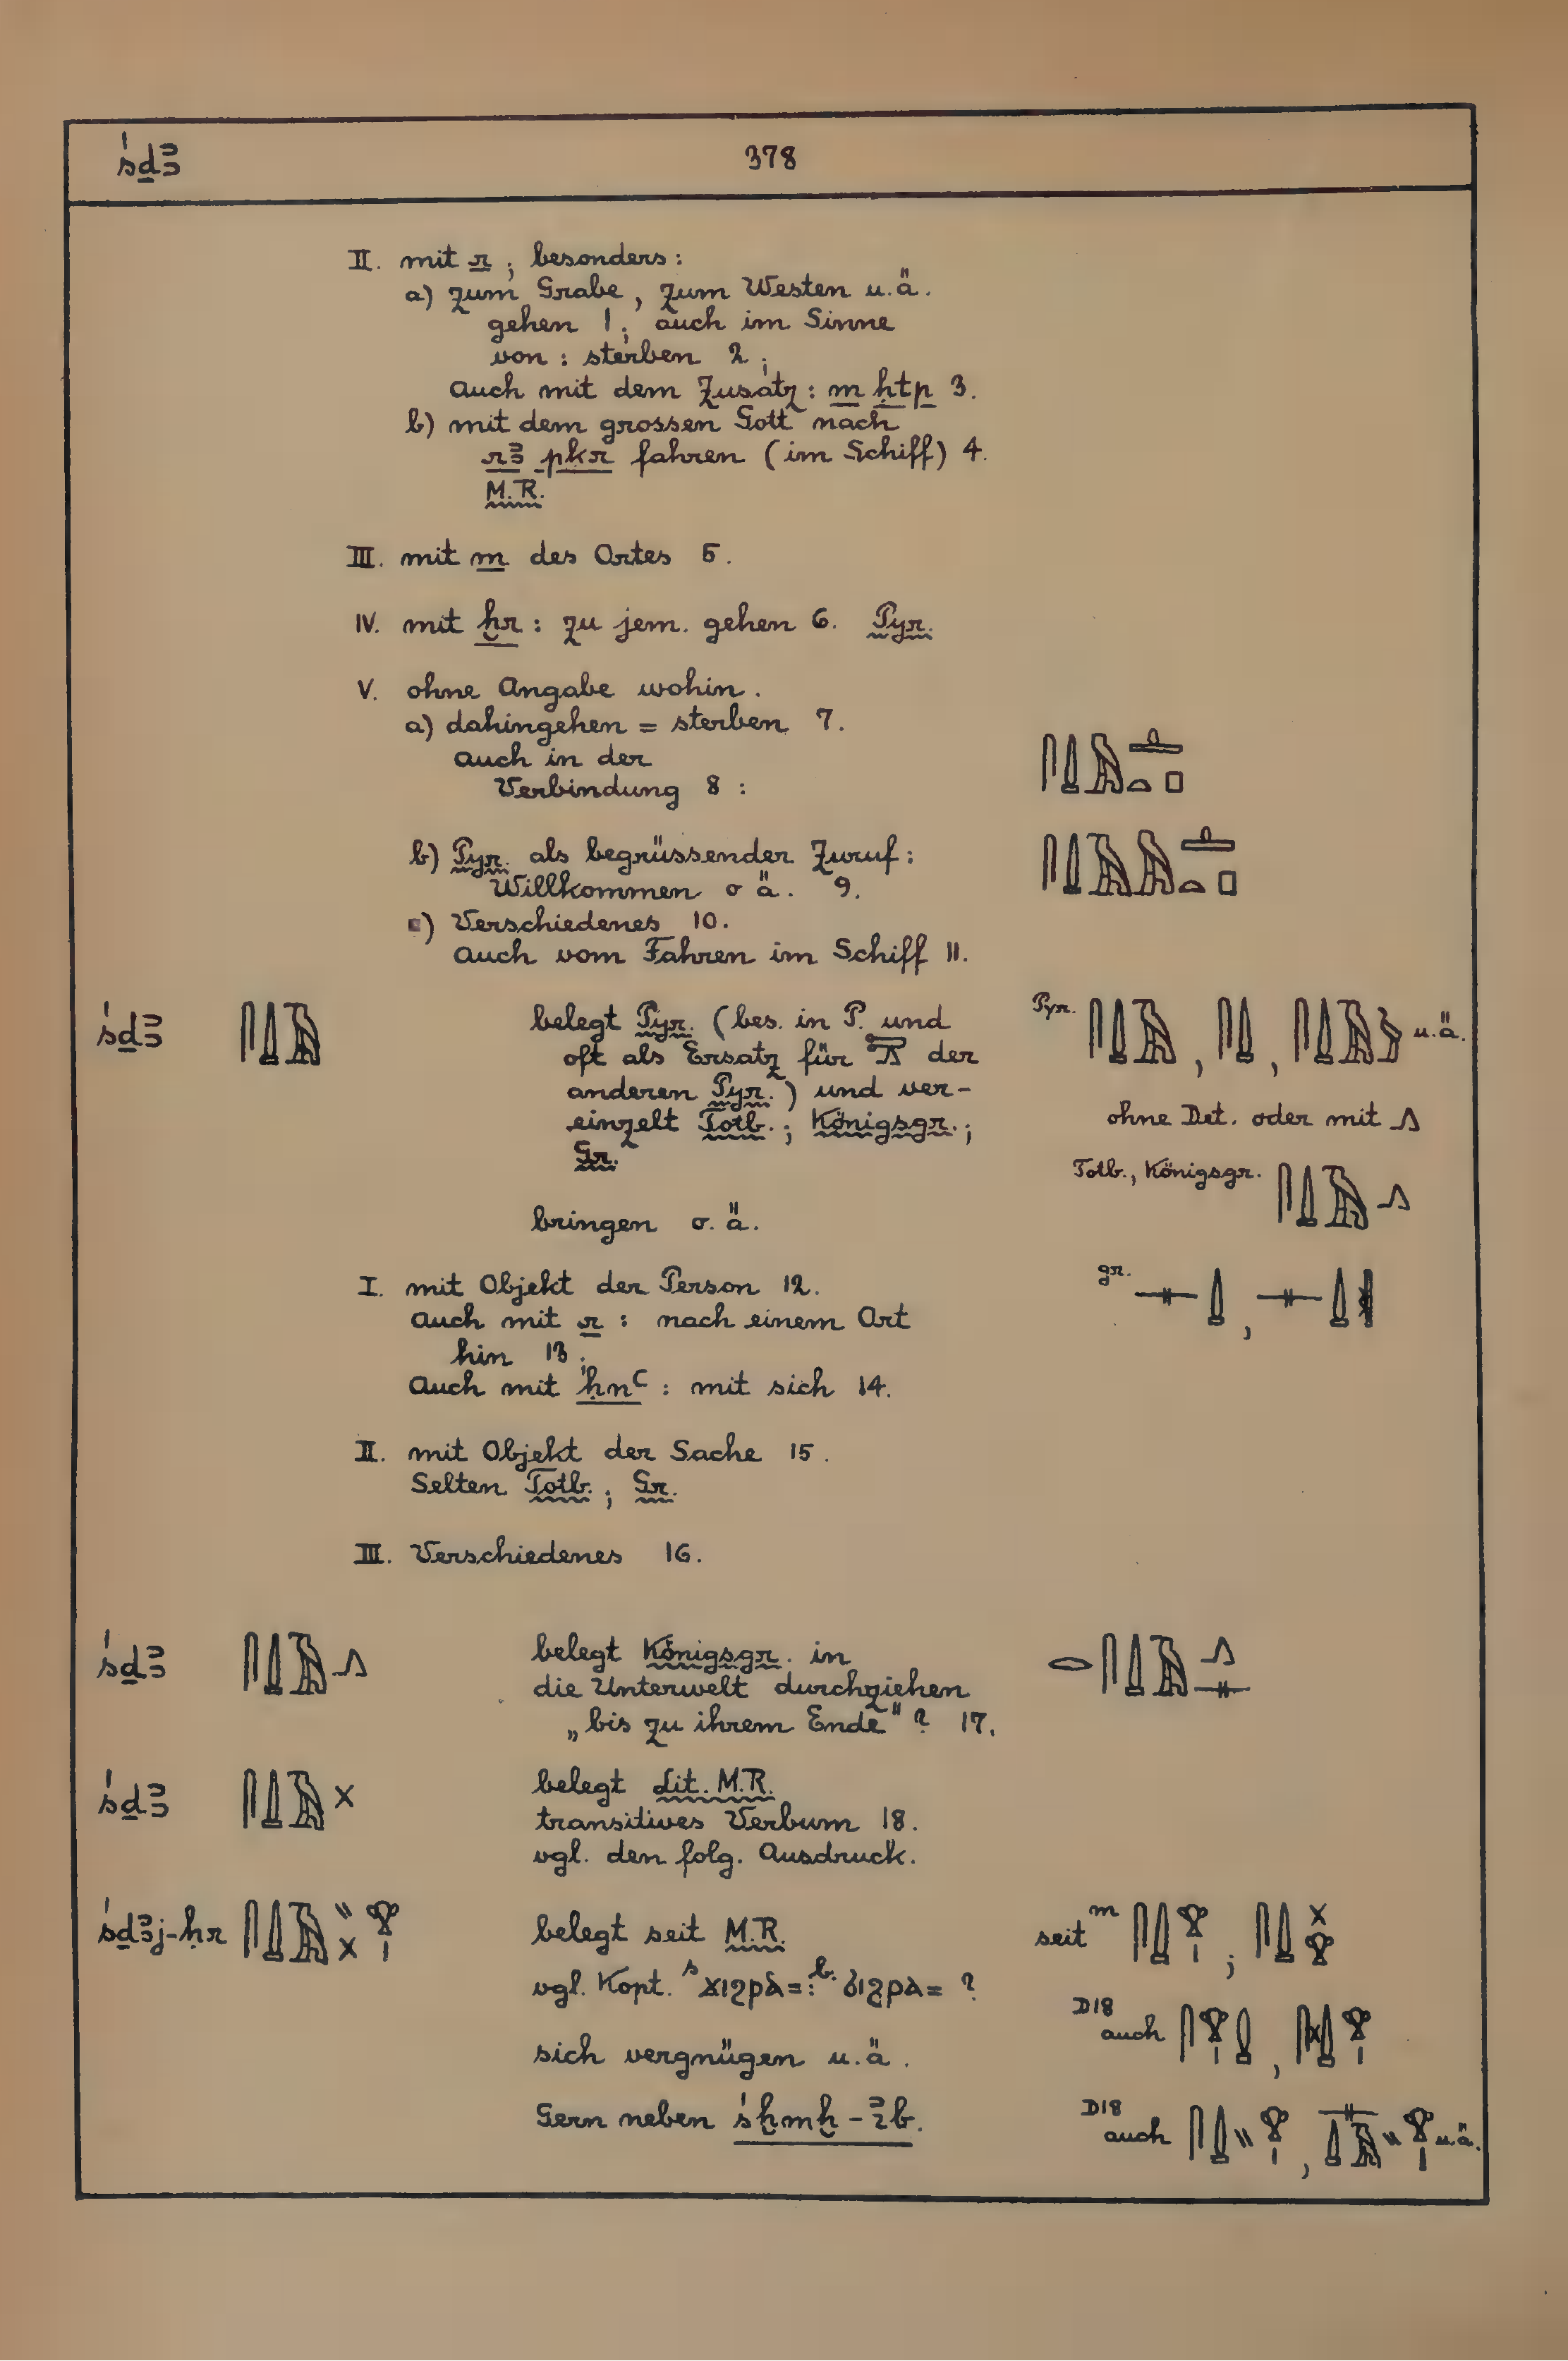 śḏꜣ
378
II. mit r ; besonders:
a) zum Grabe, zum Westen u.ä.
gehen 1; auch im Sinne
von : sterben 2;
auch mit dem Zusatz: m ḥtp 3.
b) mit dem grossen Gott nach
rꜣ-pḳr fahren (im Schiff) 4.
M.R.
III. mit m des Ortes 5.
IV. mit ḫr : zu jem. gehen 6. Pyr.
V. ohne Angabe wohin.
a) dahingehen = sterben 7.
auch in der
Verbindung 8 :
b) Pyr. als begrüssender Zuruf:
Willkommen o ä. 9.
c) Verschiedenes 10.
auch vom Fahren im Schiff 11.
śḏꜣ
belegt Pyr. (bes. in P. und
oft als Ersatz für der
anderen Pyr.) und ver-
einzelt Totb.; Königsgr.;
Gr.
Pyr. , , u.ä.
ohne Det. oder mit
Totb., Königsgr.
bringen o. ä.
gr. ,
I. mit Objekt der Person 12.
auch mit r : nach einem Ort
hin 13;
auch mit ḥnꜥ : mit sich 14.
II. mit Objekt der Sache 15.
Selten Totb.; Gr.
III. Verschiedenes 16.
śḏꜣ
belegt Königsgr. in
die Unterwelt durchziehen
„bis zu ihrem Ende" ? 17.
śḏꜣ
belegt Lit. M.R.
transitives Verbum 18.
vgl. den folg. Ausdruck.
śḏꜣj-ḥr
belegt seit M.R.
seit m ;
vgl. Kopt. s ϫⲓϩⲣⲁ= : b. ϭⲓϩⲣⲁ= ?
D18
auch ,
sich vergnügen u.ä.
Gern neben śḫmḫ-ꞽb.
D18
auch , u.ä.